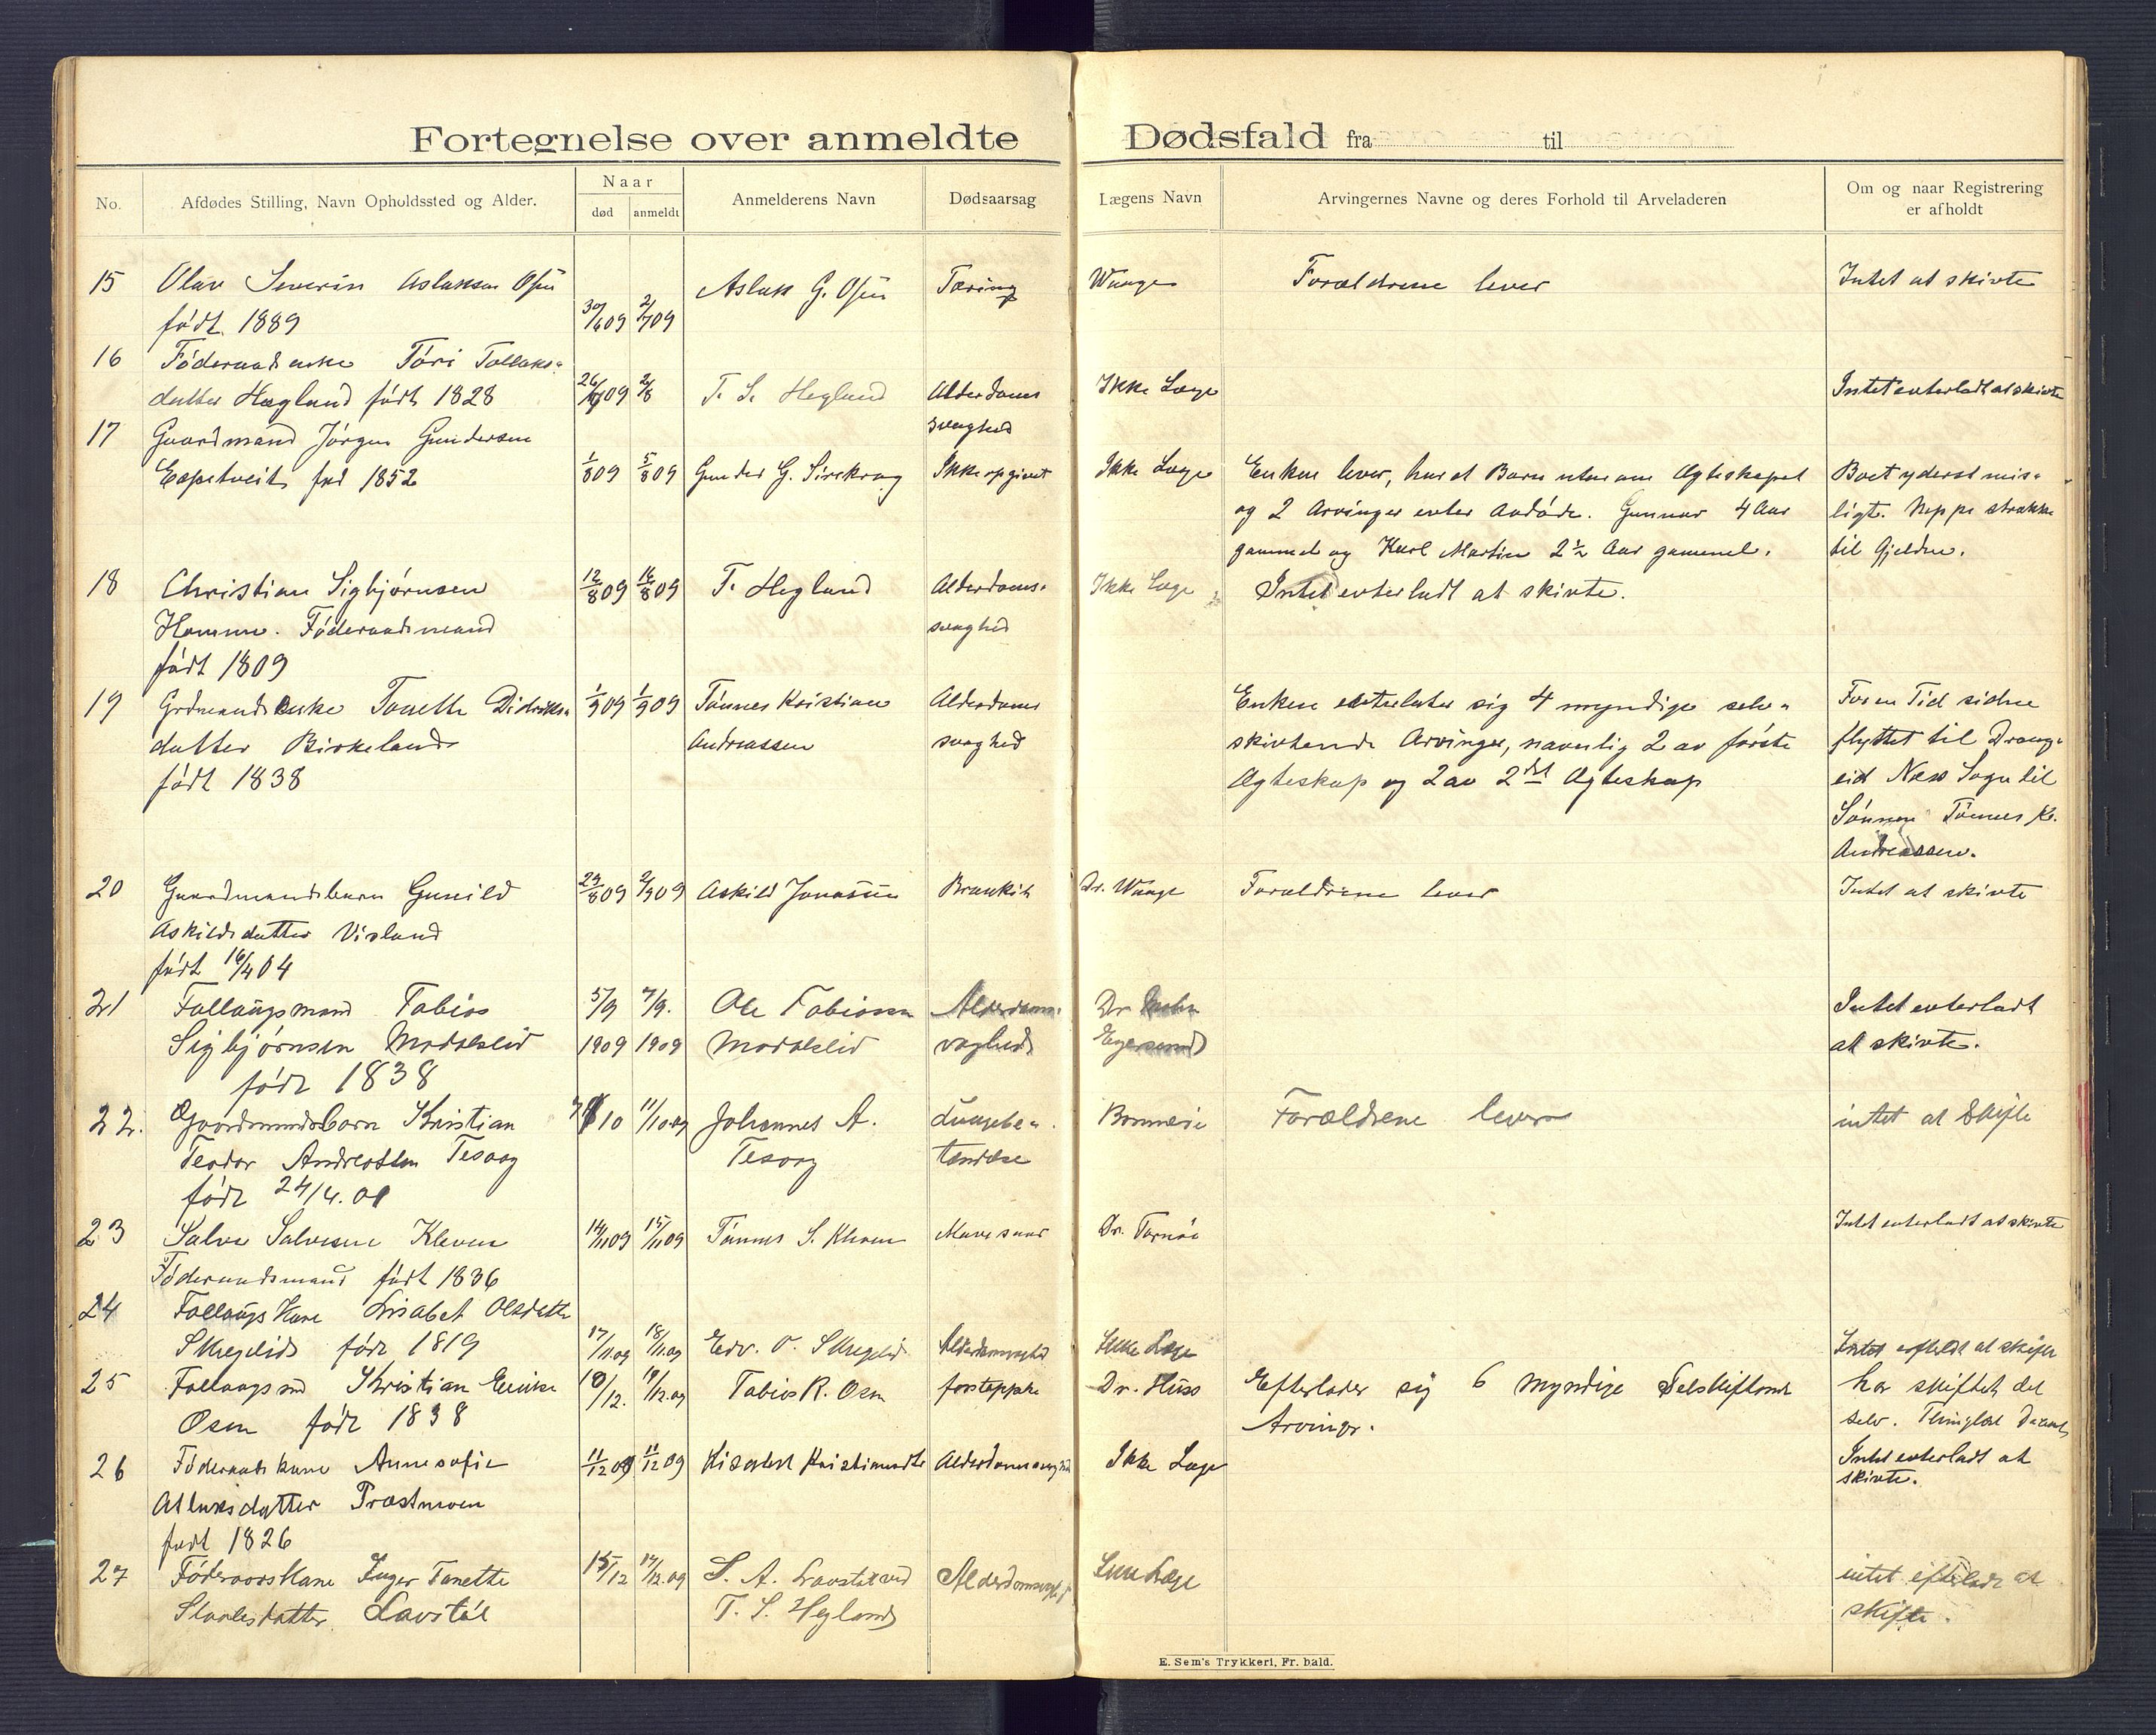 Fortegnelse over anmeldte Dødsfald fra til
No. Afdødes Stilling, Navn Opholdssted og Alder. Naar Anmelderens Navn Dødsaarsag Lægens Navn Arvingernes Navne og deres Forhold til Arveladeren Om og naar Registrering
død anmeldt er afholdt
15 Olav Severin Aslaksen Osen Aslak G. Osen Tæring Waage Forældrene lever Intet at skivte
født 1889 30/6 09 2/7 09
16 Föderaadsenke Tóri Tollaks-
datter Hægland födt 1828 26/7 09 2/8 T. S. Hegland Alderdoms Ikke Læge Intet evterladt at skivte
svaghed
17 Gaardmand Jörgen Gundersen
Eepstveit fød 1852 1/8 09 5/8 09 Gunder G. Sirekrog Ikke opgivet Ikke Læge Enken lever, har et Barn utenom Ægteskapet Boet yderst mis-
og 2 Arvinger evter Avdøde. Gunnar 4 Aar ligt. Neppe strække
gammel og Karl Martin 2 1/2 Aar gammel. til Gjelden.
18 Christian Sigbjørnsen 12/8 09 16/8 09 T. Hegland Alderdoms- Ikke Læge Intet evterladt at skivte.
Homme. Föderaadsmand svaghed
født 1809
19 Grdmandsenke Tonette Didriks- 1/9 09 1/9 09 Tönnes Kristian Alderdoms Enken evterlater sig 4 myndige selv- For en Tid siden
datter Birkeland Andreassen svaghed skivtende Arvinger, navnlig 2 av første flyttet til Drang-
født 1838 Ægteskap og 2 av 2det Ægteskap eid Næs Sogn til
Sönnen Tönnes K.
Andreassen.
20 Gaardmandsbarn Gunild 29/8 09 2/9 09 Askild Jonassen Bronkit Dr. Waage Forældrene lever Intet at skivte
Askildsdatter Visland
født 16/4 04
21 Follaugsmand Tobias 5/9 7/9. Ole Tobiasen Alderdoms- Dr Intet evterladt
Sigbjørnsen Modalslid 1909 1909 Modalslid vaghed Egersund at skivte.
født 1838
22. Gaardmandsbarn Kristian 7/10 11/10 09 Johannes A. Lungebe- Forældrene lever intet at skifte
Teodor Andreassen Tesaag Tesaag tændelse
født 24/4. 01
23 Salve Salvesen Kleven 14/11 09 15/11 09 Tönnes S. Kleven Mavesaar Dr. Tornöe Intet evterladt at skivte
Föderaadsmand født 1836
24 Follaugs Kone Lisabet Olsdatter
Skregelid født 1819 17/11.09 18/11.09 Edv. O. Skregelid Alderdomsvaghed Ikke Læge Intet efterladt at skifte
25 Follaugsmd Kristian Osen født 1838 10/12. 19/12.09 Tobias K. Osen forstoppelse Dr. Huss Efterlader sig 6 myndige Selskiftende har skiftet det
Arvinger. selv.
26 Föderaadskone Annesofie 11/12 09 11/12 09 Alderdomssvaghed Ikke Læge Intet evterladt at
Atlaksdatter Præstmoen skivte.
født 1826
27 Föderaadskone Inger Tonette 15/12 17/12.09 S. A. Alderdomsvaghed Ikke Læge intet efterladt at
Staalesdatter Lavstöl T. S. Hegland skifte.
E. Sem's Trykkeri, Fr. hald.